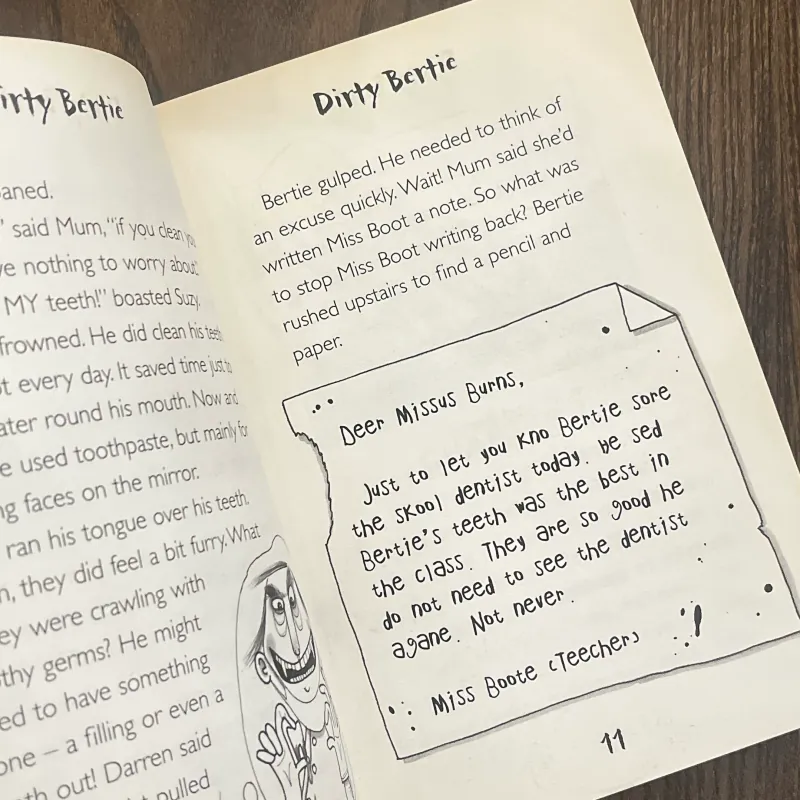 Dirty Bertie
said Mum, "if you clean
nothing to worry about."
MY teeth!" boasted Suzy.
frowned. He did clean his teeth
every day. It saved time just to
round his mouth. Now and
used toothpaste, but mainly for
faces on the mirror.
ran his tongue over his teeth.
they did feel a bit furry. What
were crawling with
germs? He might
to have something
– a filling or even a
out! Darren said
pulled
Dirty Bertie
Bertie gulped. He needed to think of
an excuse quickly. Wait! Mum said she'd
written Miss Boot a note. So what was
to stop Miss Boot writing back? Bertie
rushed upstairs to find a pencil and
paper.
Deer Missus Burns,
Just to let you kno Bertie sore
the skool dentist today. He sed
Bertie's teeth was the best in
the class. They are so good he
do not need to see the dentist
agane. Not never.
Miss Boote (Teecher)
11